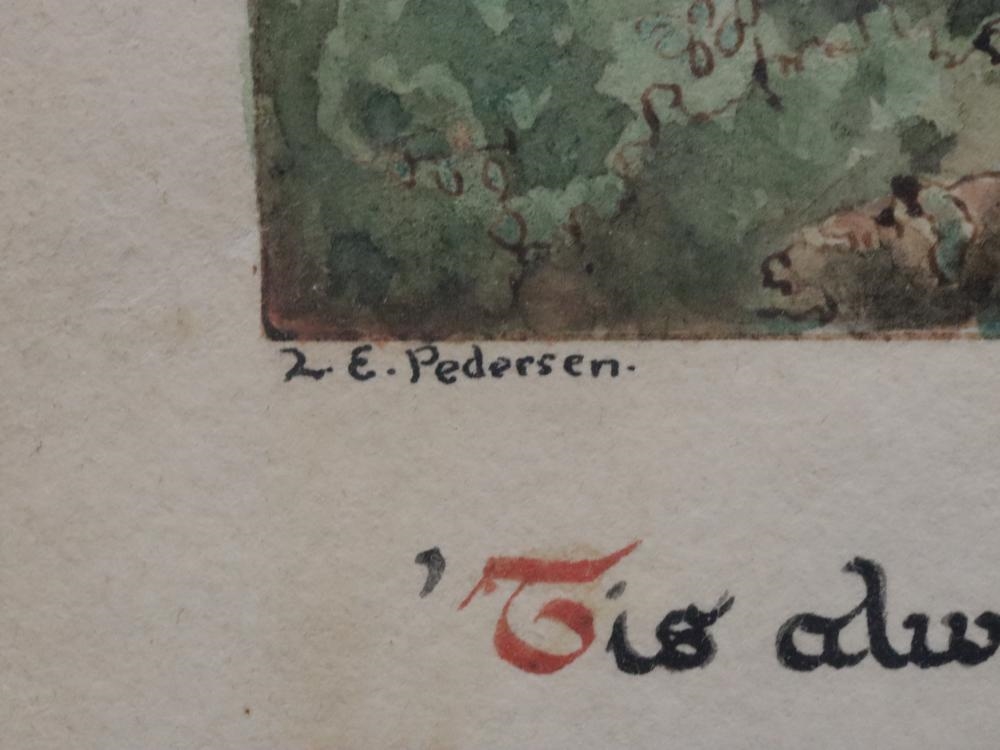 L. E. Pedersen.
'Tis alw